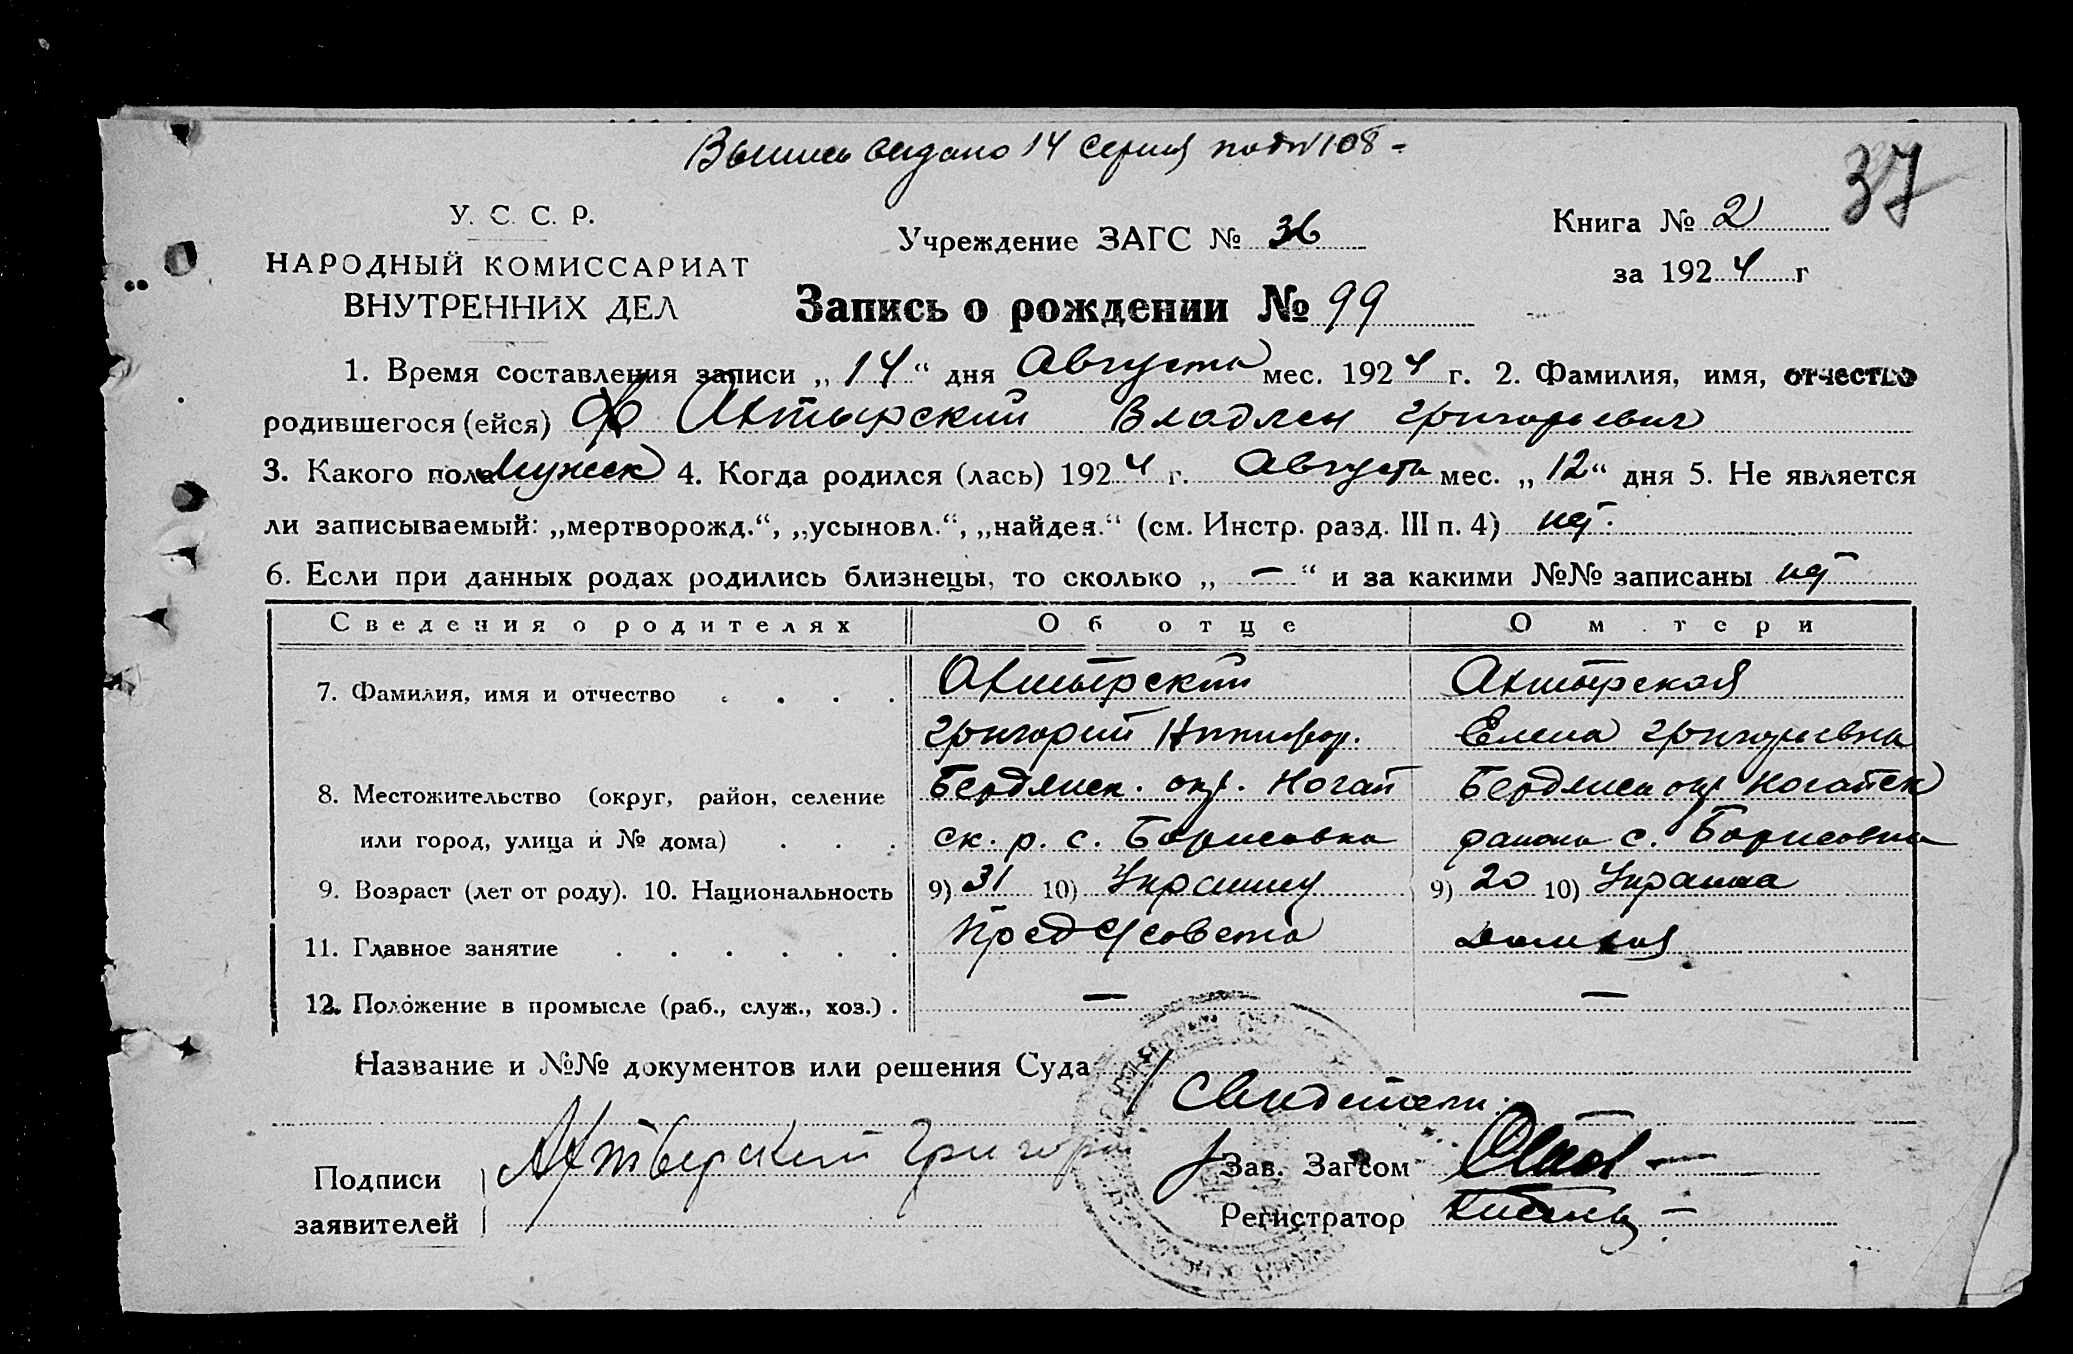 Выпись выдано 14 серия под №108 -
37
У. С. С. Р.
НАРОДНЫЙ КОМИССАРИАТ
ВНУТРЕННИХ ДЕЛ
Учреждение ЗАГС № 36
Книга № 2
за 1924 г
Запись о рождении № 99
1. Время составления записи „14“ дня Августа мес. 1924 г. 2. Фамилия, имя, отчество
родившегося (ейся) Ахтырский Владлен Григорьевич
3. Какого пола Мужск 4. Когда родился (лась) 1924 г. Августа мес. „12“ дня 5. Не является
ли записываемый: „мертворожд.“, „усыновл.“, „найден.“ (см. Инстр. разд. III п. 4) нет.
6. Если при данных родах родились близнецы, то сколько „ — “ и за какими №№ записаны нет
Сведения о родителях Об отце О матери
7. Фамилия, имя и отчество . . . . Ахтырский Ахтырская
Григорий Никифор. Елена Григорьевна
8. Местожительство (округ, район, селение Бердянск. окр. Ногай Бердянск окр Ногайск
или город, улица и № дома) . . . ск. р. с. Борисовка района с. Борисовка
9. Возраст (лет от роду). 10. Национальность 9) 31 10) Украинец 9) 20 10) Украинка
11. Главное занятие . . . . . . Пред с/совета Домашняя
12. Положение в промысле (раб., служ., хоз.) . — —
Название и №№ документов или решения Суда
Свидетели:
Подписи Ахтверский Григорий Зав. Загсом
заявителей Регистратор